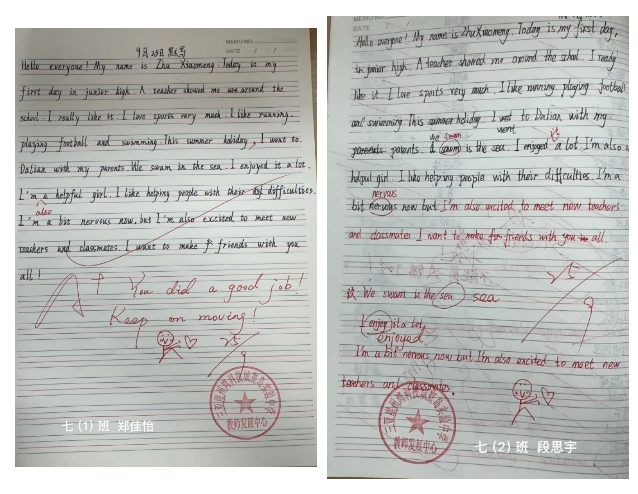 MEMO NO.
DATE / /
9月25日 默写
Hello everyone! My name is Zhu Xiaomeng. Today is my
first day in junior high. A teacher showed me around the
school. I really like it. I love sports very much. I like running,
playing football and swimming. This summer holiday, I went to
Dalian with my parents. We swam in the sea. I enjoyed it a lot.
I'm a helpful girl. I like helping people with their difficulties.
also
I'm a bit nervous now, but I'm also excited to meet new
teachers and classmates. I want to make friends with you
all!
You did a good job!
Keep on moving!
25/9
教师发展中心
七 (1) 班 郑佳怡
DATE
Hello everyone! My name is Zhu Xiaomeng. Today is my first day,
in junior high. A teacher showed me around the school. I really
like it. I love sports very much. I like running, playing football
and swimming. This summer holiday. I went to Dalian with my
went
we swam it
parents parents. I swam is the sea. I enjoyed a lot. I'm also a
helpful girl. I like helping people with their difficulties. I'm a
nervous
bit nervous now but I'm also excited to meet new teachers
and classmates I want to make friends with you all.
25/9
We swam is the sea sea
I enjoy it a lot.
enjoyed
I'm a bit nervous now but I'm also excited to meet new
teachers and classmates.
教师发展中心
七 (2) 班 段思宇